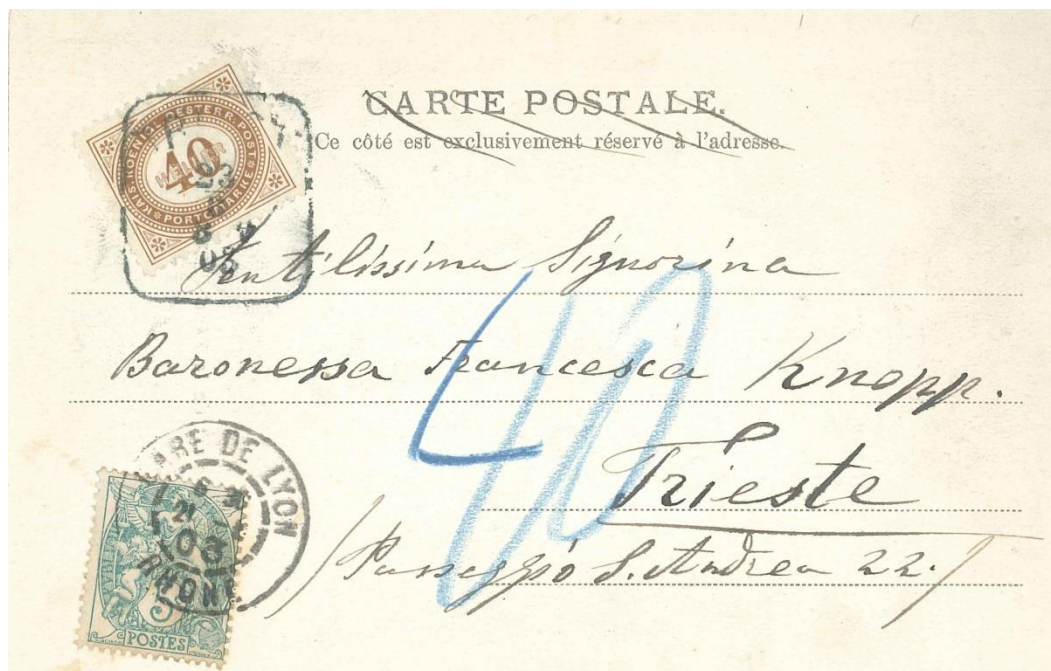 CARTE POSTALE.
Ce côté est exclusivement réservé à l'adresse.
KAIS. KOENIGL. OESTERR. POST
40
PORTOMARKE
23
8
03
Gentilissima Signorina
Baronessa Francesca Knepp.
40
Trieste
/Passeggio S. Andrea 22./
GARE DE LYON
21
03
RHONE
5
POSTES